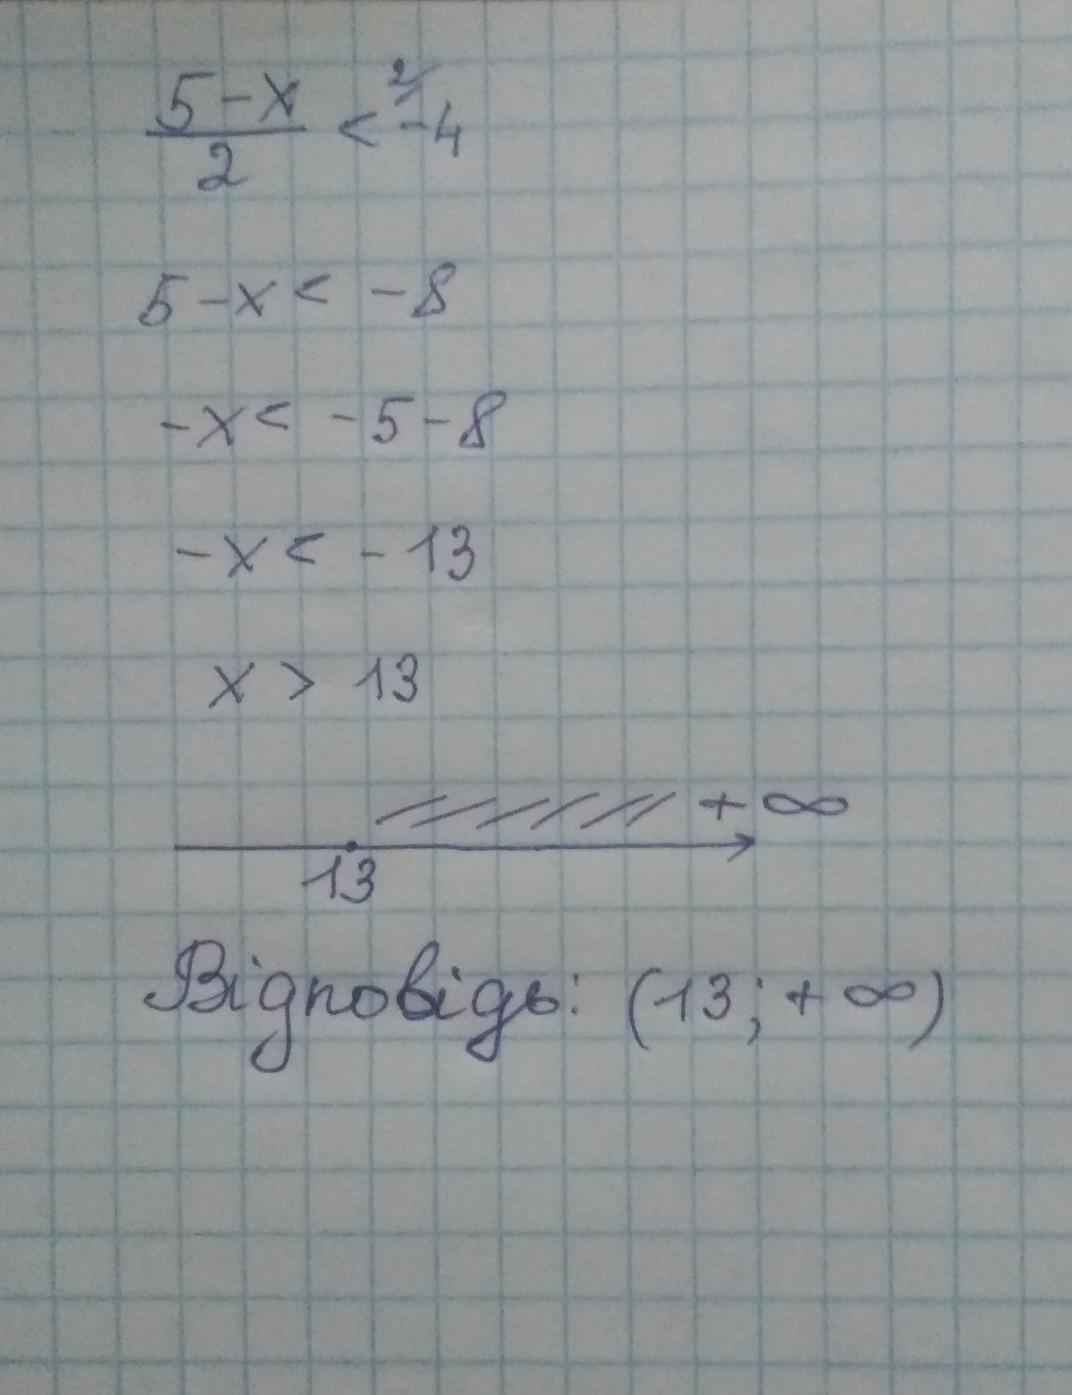 5-x / 2 < ²⁄ -4
5-x < -8
-x < -5-8
-x < -13
x > 13
+∞
13
Відповідь: (13; +∞)